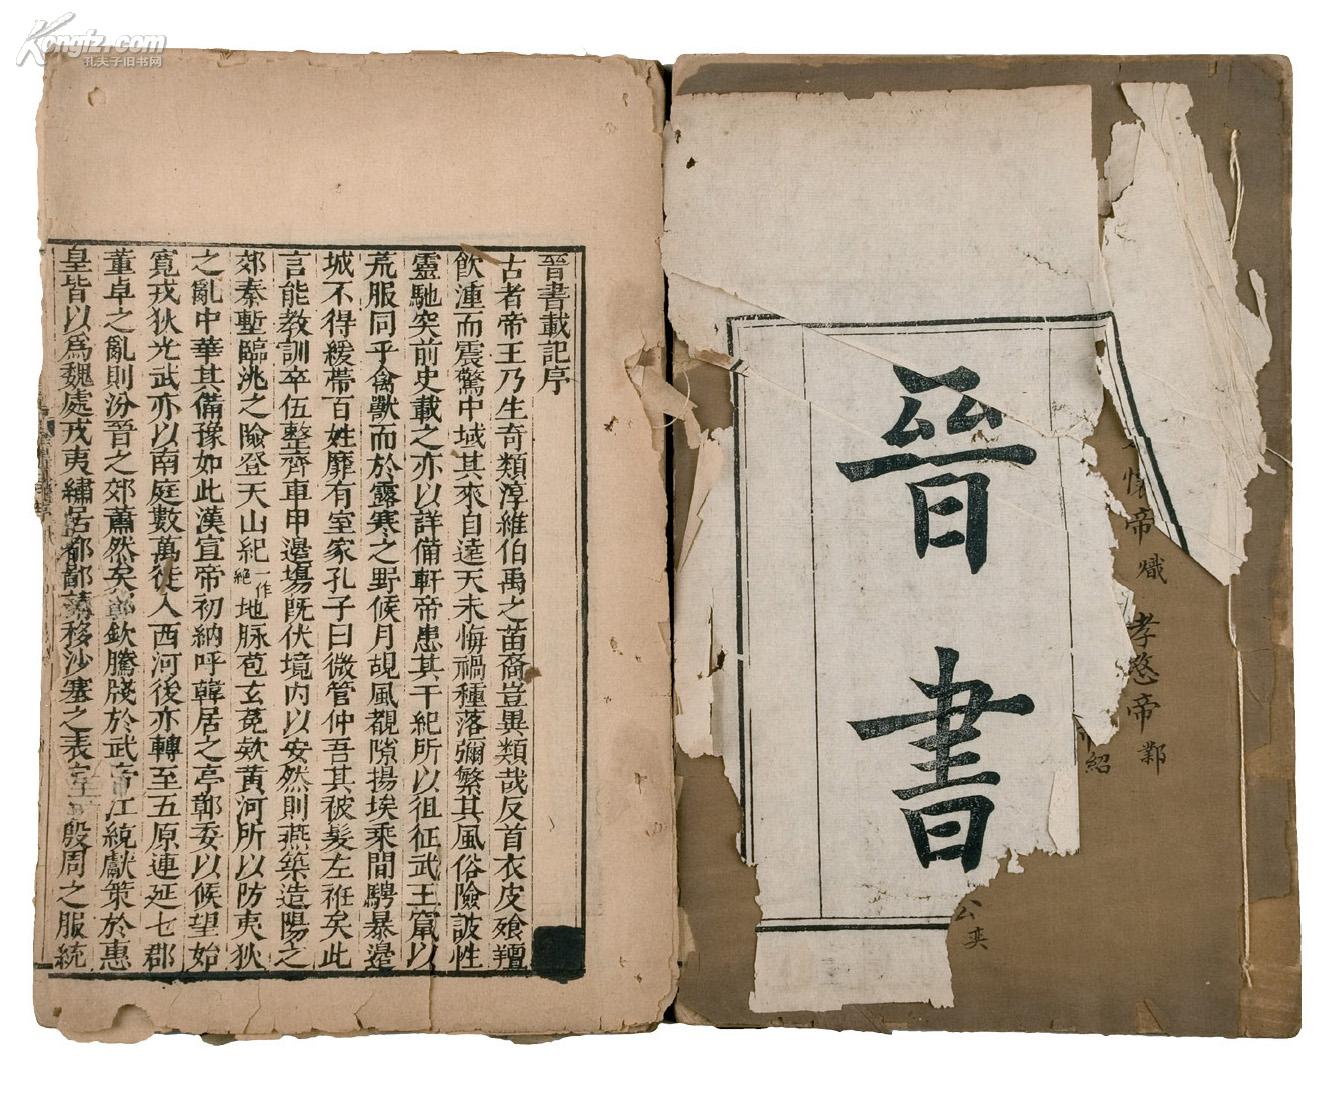 Kongfz.com
孔夫子旧书网
晉書
懷帝熾 孝愍帝鄴
紹
公奕
晉書載記序
古者帝王乃生奇類淳維伯禹之苗裔豈異類哉反首衣皮飱羶
飲湩而震驚中域其來自遠天未悔禍種落彌繁其風俗險詖性
靈馳突前史載之亦以詳備軒帝患其干紀所以徂征武王竄以
荒服同乎禽獸而於露寒之野候月覘風覩隙揚埃乘間騁暴邊
城不得緩帶百姓靡有室家孔子曰微管仲吾其被髮左袵矣此
言能教訓卒伍整齊車甲邊場旣伏境内以安然則燕築造陽之
郊秦塹臨洮之險登天山紀一作絕地脉苞玄菟欵黄河所以防夷狄
之亂中華其備豫如此漢宣帝初納呼韓居之亭鄣委以候望始
寛戎狄光武亦以南庭數萬徙入西河後亦轉至五原連延七郡
董卓之亂則汾晉之郊蕭然矣郭欽騰牋於武帝江統獻策於惠
皇皆以爲魏處戎夷繡居都鄙請移沙塞之表定一殷周之服統